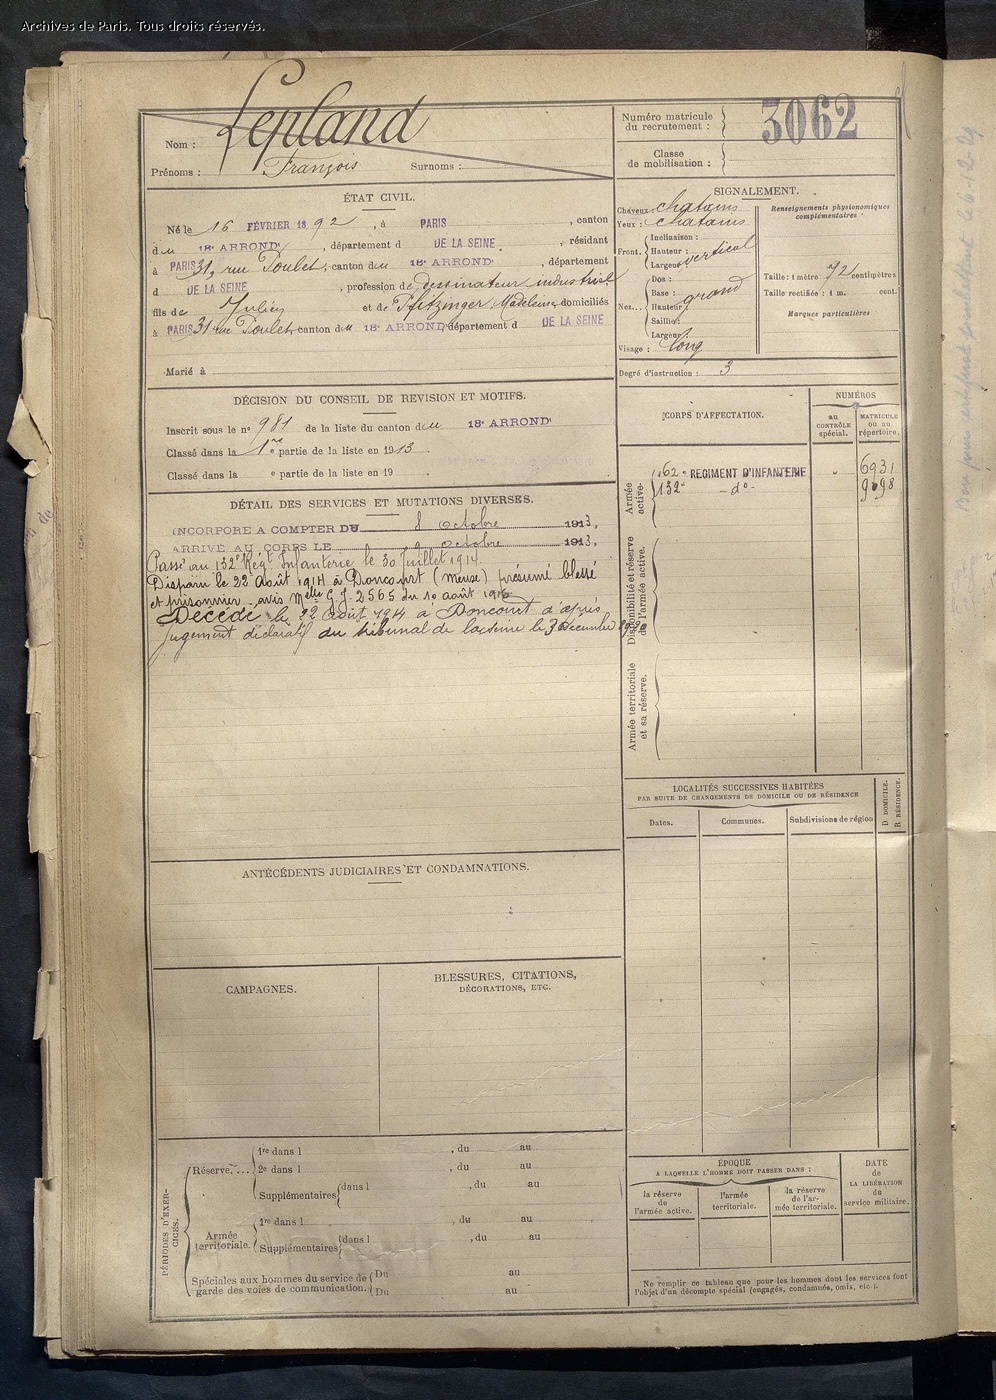 Archives de Paris. Tous droits réservés.
Nom : Lepland
Prénoms : François Surnoms :
Numéro matricule du recrutement : 3062
Classe de mobilisation :
ÉTAT CIVIL.
Né le 16 FÉVRIER 1892, à PARIS, canton
du 18e ARRONDt, département d DE LA SEINE, résidant
à PARIS 31, rue Poulet, canton du 18e ARRONDt, département
d DE LA SEINE, profession de dessinateur industriel
fils de Julien et de Pfitzinger Madeleine domiciliés
à PARIS 31 rue Poulet canton du 18e ARRONDt département d DE LA SEINE
Marié à
SIGNALEMENT.
Cheveux châtains
Yeux : châtains
Front. Inclinaison :
Hauteur : vertical
Largeur
Nez. Dos :
Base : grand
Hauteur :
Saillie :
Largeur :
Visage : long
Renseignements physionomiques complémentaires
Taille : 1 mètre 72 centimètres
Taille rectifiée : 1 m. cent.
Marques particulières
Degré d'instruction : 3
DÉCISION DU CONSEIL DE REVISION ET MOTIFS.
Inscrit sous le n° 981 de la liste du canton du 18e ARRONDt
Classé dans la 1re partie de la liste en 1913.
Classé dans la e partie de la liste en 19
DÉTAIL DES SERVICES ET MUTATIONS DIVERSES.
INCORPORÉ A COMPTER DU 8 octobre 1913,
ARRIVÉ AU CORPS LE 9 octobre 1913,
Passé au 132e Régt Infanterie le 30 Juillet 1914
Disparu le 22 Août 1914 à Doncourt (meuse) présumé blessé
et prisonnier avis Melle G.J. 2565 du 10 août 1916
Décédé le 22 août 1914 à Doncourt d'après
jugement déclaratif du tribunal de la seine le 3 décembre 1920
CORPS D'AFFECTATION.
NUMÉROS
au contrôle spécial.
MATRICULE ou au répertoire.
Armée active.
162e REGIMENT D'INFANTERIE " 6931
132e - do - 9098
Disponibilité et réserve de l'armée active.
Armée territoriale et sa réserve.
LOCALITÉS SUCCESSIVES HABITÉES
PAR SUITE DE CHANGEMENTS DE DOMICILE OU DE RÉSIDENCE
D DOMICILE.
R RÉSIDENCE.
Dates. Communes. Subdivisions de région
ANTÉCÉDENTS JUDICIAIRES ET CONDAMNATIONS.
CAMPAGNES.
BLESSURES, CITATIONS, DÉCORATIONS, ETC.
PÉRIODES D'EXERCICES.
Réserve
1re dans l , du au
2e dans l , du au
Supplémentaires dans l , du au
Armée territoriale.
1re dans l , du au
Supplémentaires dans l , du au
Spéciales aux hommes du service de garde des voies de communication.
Du au
Du au
ÉPOQUE
A LAQUELLE L'HOMME DOIT PASSER DANS :
la réserve de l'armée active.
l'armée territoriale.
la réserve de l'armée territoriale.
DATE de LA LIBÉRATION du service militaire.
Ne remplir ce tableau que pour les hommes dont les services font
l'objet d'un décompte spécial (engagés, condamnés, omis, etc.).